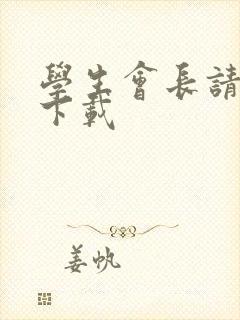 學生會長請
下載
姜帆